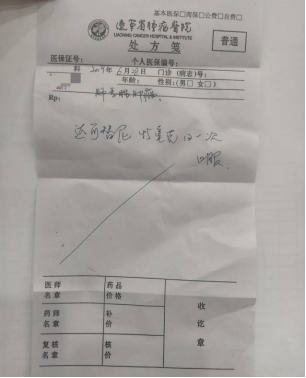 基本医保□商保□公费□自费□
辽宁省肿瘤医院
LIAONING CANCER HOSPITAL & INSTITUTE
处方笺
普通
医保证号： 个人医保编号：
科 2019年6月 日 门诊（病志）号：
年龄： 性别：(男□ 女□)
Rp:
达可替尼 日一次
口服
医师 药品
名章 价格
收
药师 补
名章 价
讫
复核 核
名章 价
章